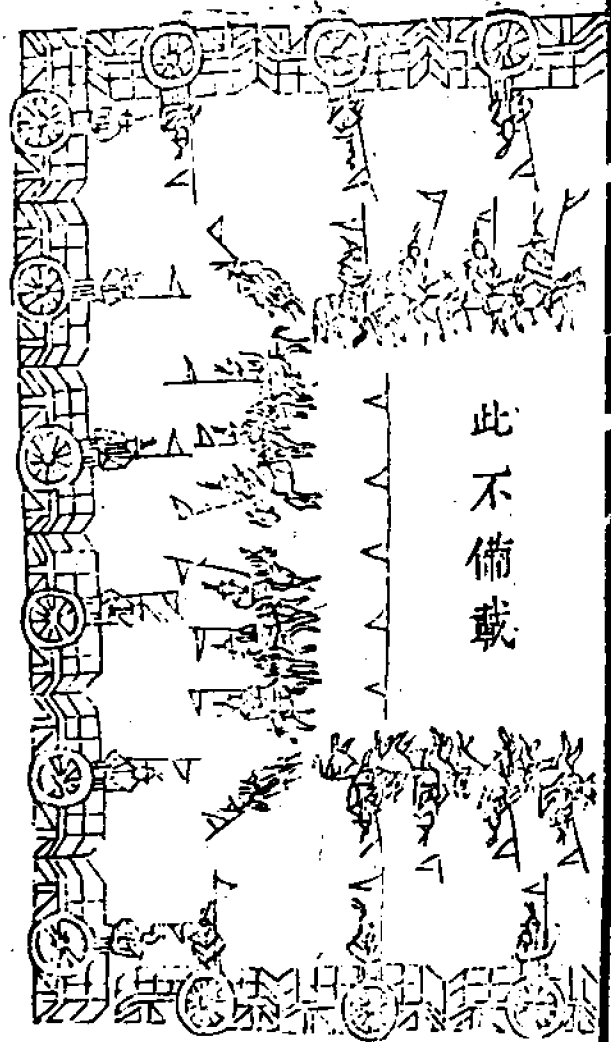 此不備載